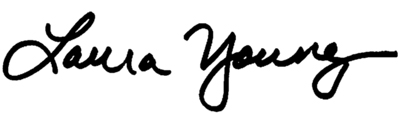 Laura Young